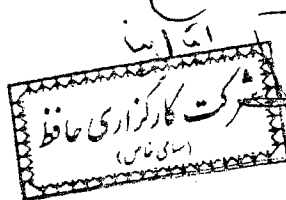 شرکت کارگزاری حافظ
(سهامی خاص)